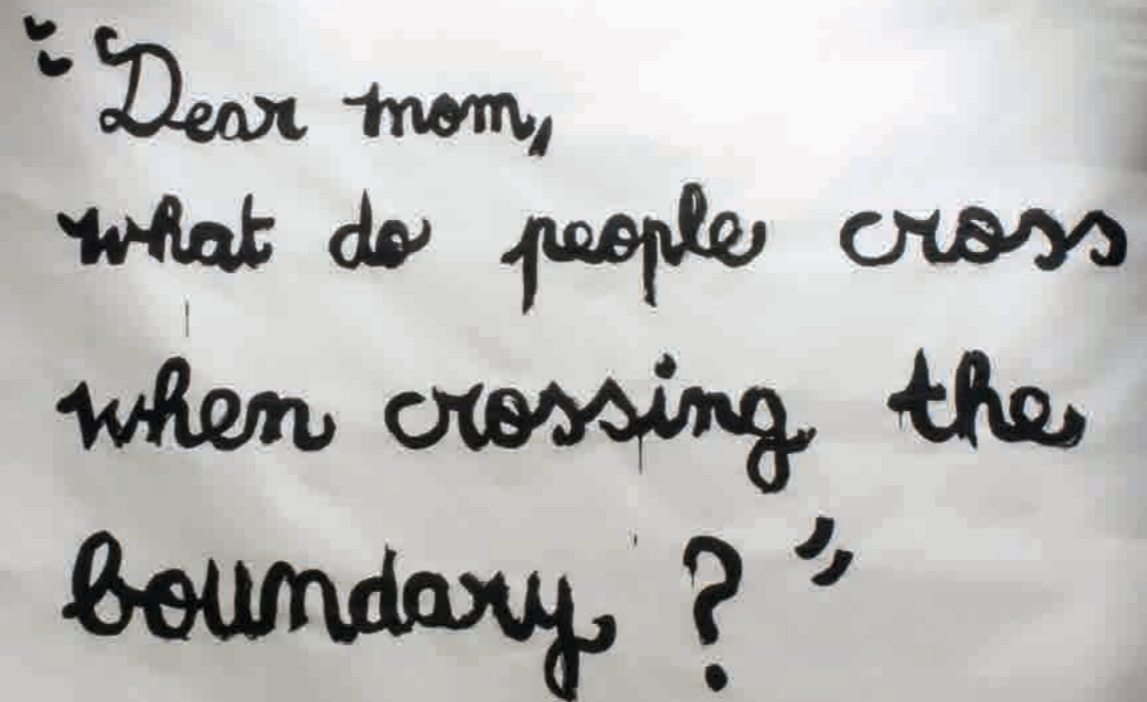 "Dear mom,
what do people cross
when crossing the
boundary ?"